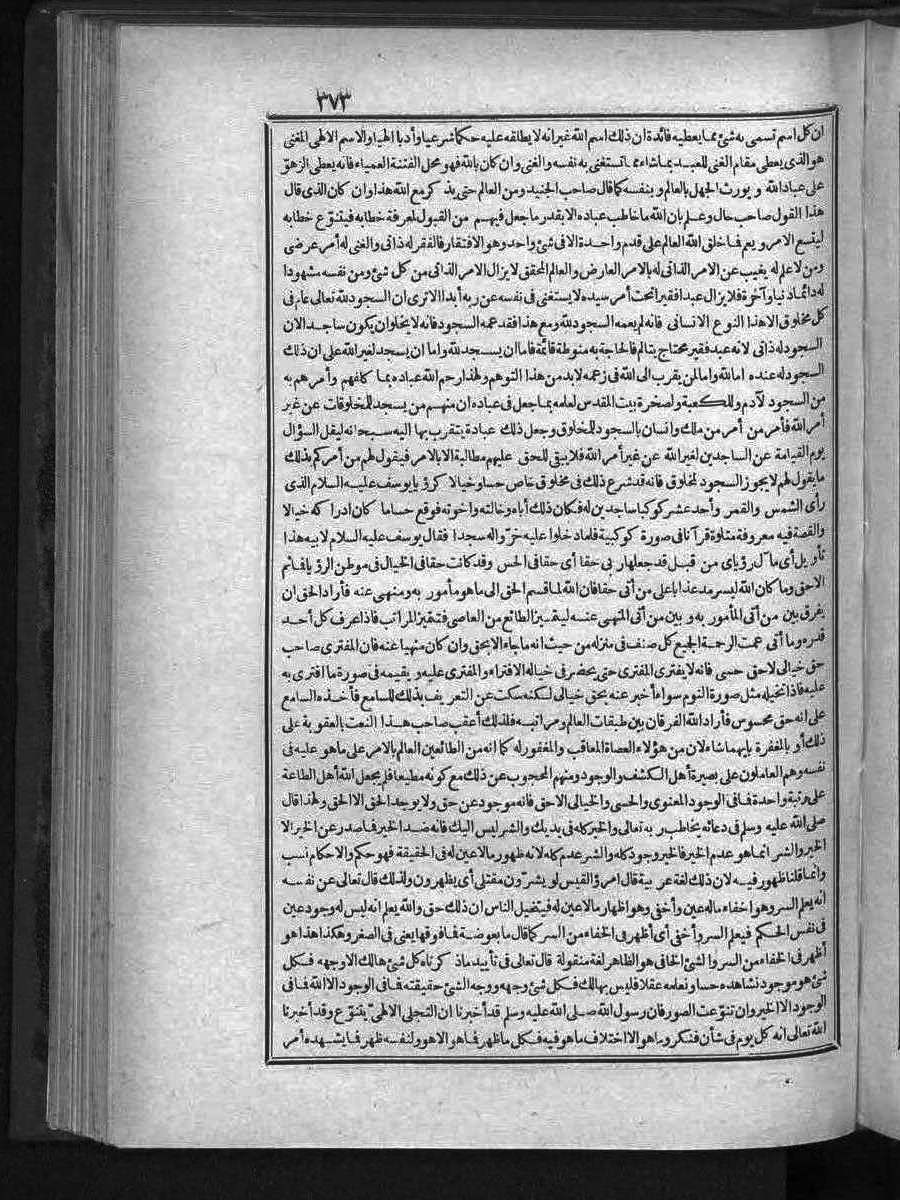 ٣٧٣
ان كل اسم تسمى به شئ مما يعطيه فائدة ان ذلك اسم الله غير انه لا يطلقه عليه حكما شرعيا وأدبا الهيا والاسم الالهى المغنى
هو الذى يعطى مقام الغنى للعبد بما شاء مما تستغنى به نفسه والغنى وان كان بالله فهو محل الفتنة العمياء فانه يعطى الزهو
على عباد الله ويورث الجهل بالعالم وبنفسه كما قال صاحب الجنيد ومن العالم حتى يذكر مع الله هذا وان كان الذى قال
هذا القول صاحب حال وعلم بان الله ما خاطب عباده الا بقدر ما جعل فيهم من القبول لمعرفة خطابه فيتنوّع خطابه
ليتسع الامر ويعم فما خلق الله العالم على قدم واحدة الا فى شئ واحد وهو الافتقار فالفقر له ذاتى والغنى له أمر عرضى
ومن لا علم له يغيب عن الامر الذاتى له بالامر العارض والعالم المحقق لا يزال الامر الذاتى من كل شئ ومن نفسه مشهودا
له دائما دنيا وآخرة فلا يزال عبدا فقيرا تحت أمر سيده لا يستغنى فى نفسه عن ربه أبدا ألا ترى ان السجود لله تعالى عام فى
كل مخلوق الا هذا النوع الانسانى فانه لم يعمه السجود لله ومع هذا فقد عمه السجود فانه لا يخلو ان يكون ساجدا لان
السجود له ذاتى لانه عبد فقير محتاج يتألم فالحاجة به منوطة قائمة فاما ان يسجد لله واما ان يسجد لغير الله على ان ذلك
السجود له عنده اما لله واما لمن يقرب الى الله فى زعمه لا بد من هذا التوهم ولهذا رحم الله عباده بما كلفهم وأمرهم به
من السجود لآدم وللكعبة ولصخرة بيت المقدس لعلمه بما جعل فى عباده ان منهم من يسجد للمخلوقات عن غير
أمر الله فأمر من أمر من ملك وانسان بالسجود للمخلوق وجعل ذلك عبادة يتقرب بها اليه سبحانه ليقل السؤال
يوم القيامة عن الساجدين لغير الله عن غير أمر الله فلا يبقى للحق عليهم مطالبة الا بالامر فيقول لهم من أمركم بذلك
ما يقول لهم لا يجوز السجود لمخلوق فانه قد شرع ذلك فى مخلوق خاص حسا وخيالا كرؤيا يوسف عليه السلام الذى
رأى الشمس والقمر وأحد عشر كوكبا ساجدين له فكان ذلك أباه وخالته واخوته فوقع حسا ما كان ادراكه خيالا
والقصة فيه معروفة متلوة قرآنا فى صورة كوكبية فلما دخلوا عليه خرّوا له سجدا فقال يوسف عليه السلام لابيه هذا
تأويل أى مآل رؤياى من قبل قد جعلها ربى حقا أى حقا فى الحس وقد كانت حقا فى الخيال فى موطن الرؤيا فما ثم
الا حق وما كان الله ليسرمد عذابا على من أتى حقا فان الله لما قسم الحق الى ما هو مأمور به ومنهى عنه فأراد الحق ان
يفرق بين من أتى المأمور به وبين من أتى المنهى عنه ليتميز الطائع من العاصى فتتميز المراتب فاذا عرف كل أحد
قدره وما أتى عمت الرحمة الجميع كل صنف فى منزله من حيث انه ما جاء الا بحق وان كان منهيا عنه فان المفترى صاحب
حق خيالى لا حق حسى فانه لا يفترى المفترى حتى يحضر فى خياله الافتراء والمفترى عليه ويقيمه فى صورة ما افترى به
عليه فاذا تخيله مثل صورة النوم سواء أخبر عنه بحق خيالى لكنه سكت عن التعريف بذلك للسامع فأخذه السامع
على انه حق محسوس فأراد الله الفرقان بين طبقات العالم ومراتبه فلذلك أعقب صاحب هذا النعت بالعقوبة على
ذلك أو بالمغفرة بايهما شاء لان من هؤلاء العصاة المعاقب والمغفور له كما انه من الطائعين العالم بالامر على ما هو عليه فى
نفسه وهم العاملون على بصيرة أهل الكشف والوجود ومنهم المحجوب عن ذلك مع كونه مطيعا فلم يجعل الله أهل الطاعة
على رتبة واحدة فما فى الوجود المعنوى والحسى والخيالى الا حق فانه موجود عن حق ولا يوجد الحق الا الحق ولهذا قال
صلى الله عليه وسلم فى دعائه يخاطب ربه تعالى والخير كله فى يديك والشر ليس اليك فانه ضد الخير فما صدر عن الخير الا
الخير والشر انما هو عدم الخير فالخير وجود كله والشر عدم كله لانه ظهور ما لا عين له فى الحقيقة فهو حكم والاحكام نسب
وانما قلنا ظهور فيه لان ذلك لغة عربية قال امرؤ القيس لو يشرّون مقتلى أى يظهرون ولذلك قال تعالى عن نفسه
انه يعلم السر وهو اخفاء ما له عين وأخفى وهو اظهار ما لا عين له فيتخيل الناس ان ذلك حق والله يعلم انه ليس له وجود عين
فى نفس الحكم فيعلم السر وأخفى أى أظهر فى الخفاء من السر كما قال ما بعوضة فما فوقها يعنى فى الصغر وهكذا هذا هو
أظهر فى الخفاء من السر والشئ الخافى هو الظاهر لغة منقولة قال تعالى فى تأييد ما ذكرناه كل شئ هالك الا وجهه فكل
شئ هو موجود نشاهده حسا ونعلمه عقلا فليس بهالك فكل شئ وجهه ووجه الشئ حقيقته فما فى الوجود الا الله فما فى
الوجود الا الخير وان تنوّعت الصور فان رسول الله صلى الله عليه وسلم قد أخبرنا ان التجلى الالهىّ يتنوّع وقد أخبرنا
الله تعالى انه كل يوم فى شأن فنكر وما هو الا اختلاف ما هو فيه فكل ما ظهر فما هو الا هو ولنفسه ظهر فما يشهده أمر